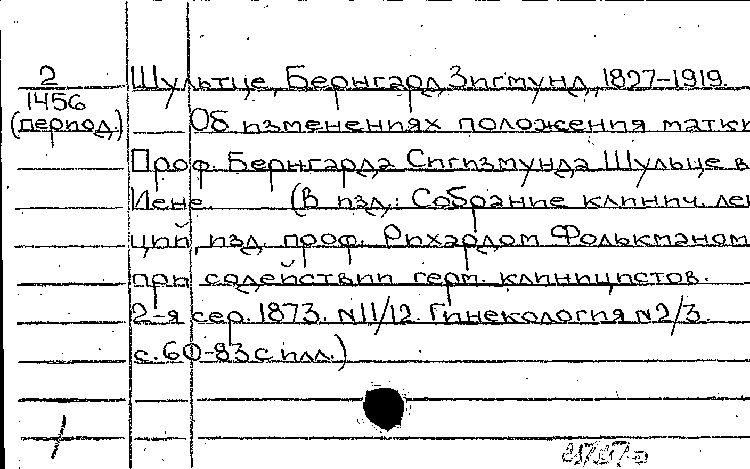 2 Шультце, Бернгард Зигмунд, 1827-1919.
1456
(период.) Об изменениях положения матки
Проф. Бернгарда Сигизмунда Шульце в
Иене. (В изд.: Собрание клинич. лек
ций, изд. проф. Рихардом Фолькманом
при содействии герм. клиницистов.
2-я сер. 1873. №11/12. Гинекология №2/3.
с. 60-83 с илл.)